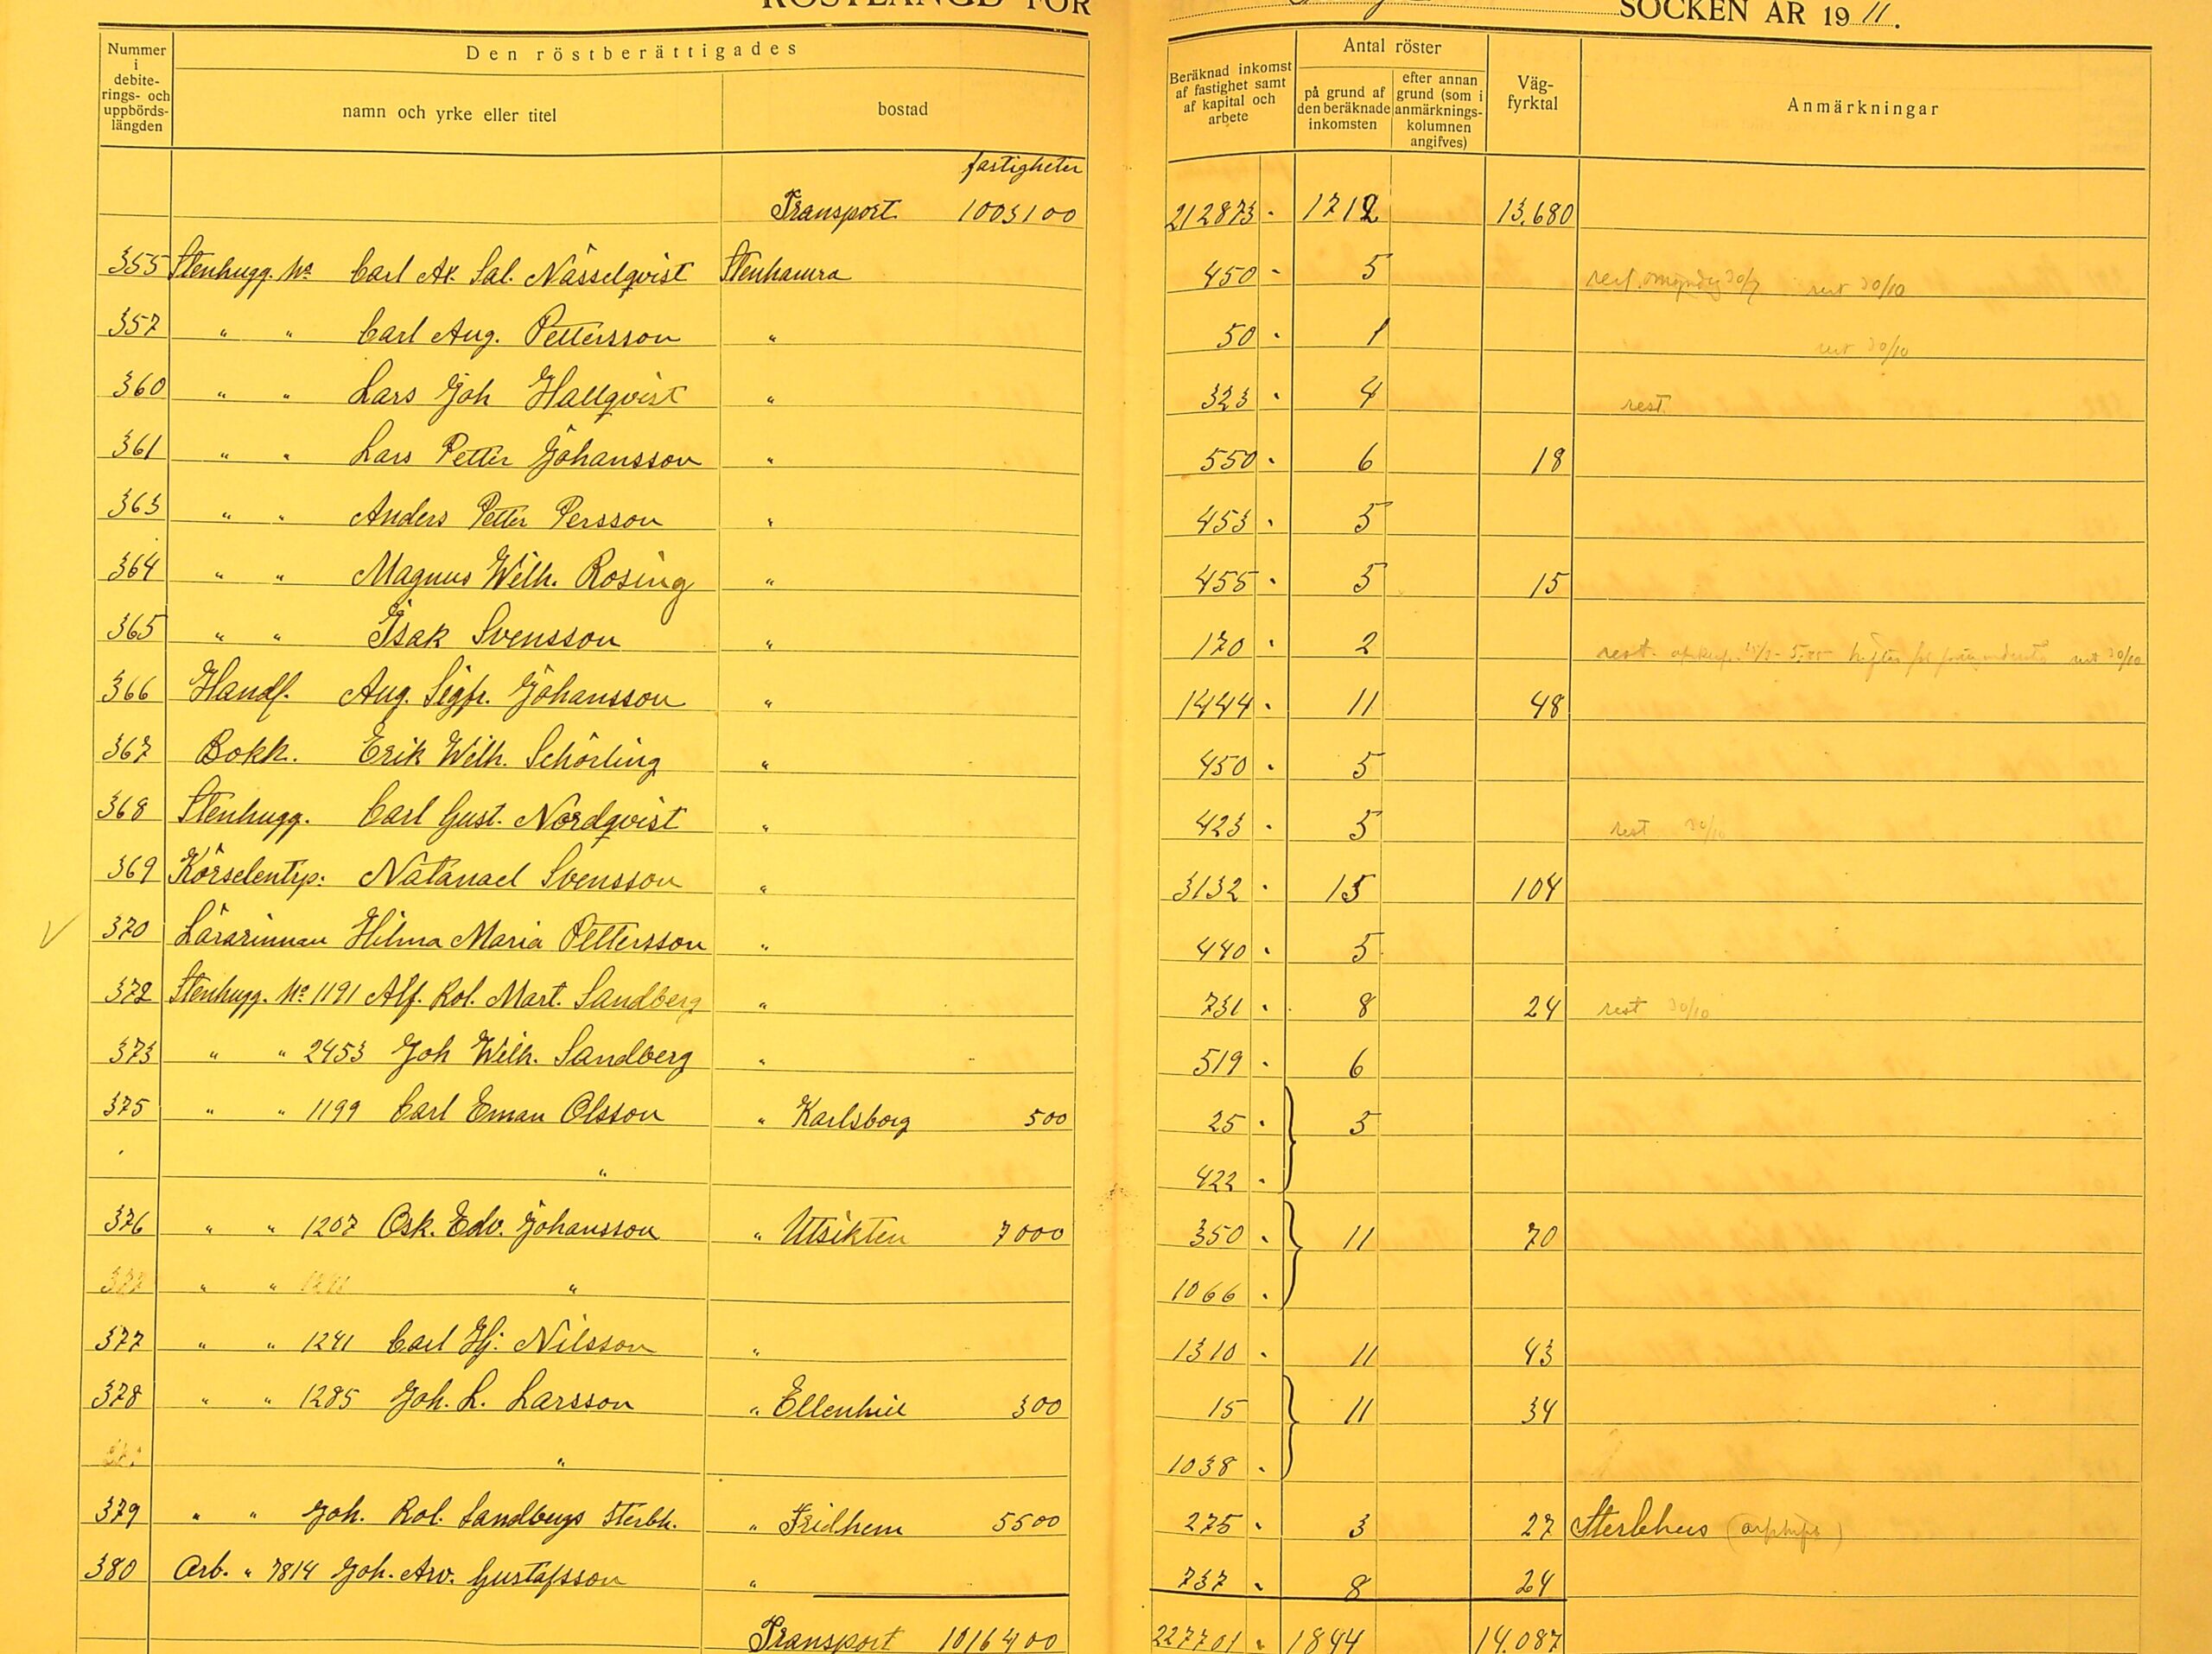 RÖSTLÄNGD FÖR SOCKEN ÅR 1911.
Nummer i debiterings- och uppbördslängden
Den röstberättigades
namn och yrke eller titel
bostad
Beräknad inkomst af fastighet samt af kapital och arbete
Antal röster
på grund af den beräknade inkomsten
efter annan grund (som i anmärkningskolumnen angifves)
Vägfyrktal
Anmärkningar
fastigheter
Transport 1003100 212873 - 1712 13.680
355 Stenhugg. No Carl Ax. Sal. Nässelqvist Stenhamra 450 - 5 rest. omyndig 30/7 rest 30/10
357 " " Carl Aug. Pettersson " 50 - 1 rest 30/10
360 " " Lars Joh Hallqvist " 323 - 4 rest
361 " " Lars Petter Johansson " 550 - 6 18
363 " " Anders Petter Persson " 453 - 5
364 " " Magnus Wilh. Rosing " 455 - 5 15
365 " " Isak Svensson " 170 - 2 rest. rest 30/10
366 Handl. Aug. Sigfr. Johansson " 1444 - 11 48
367 Bokh. Erik Wilh. Schörling " 450 - 5
368 Stenhugg. Carl Gust. Nordqvist " 423 - 5 rest 30/10
369 Körselentrp: Natanael Svensson " 3132 - 15 104
370 Lärarinnan Hilma Maria Pettersson " 440 - 5
372 Stenhugg. No 1191 Alf. Rol. Mart. Sandberg " 731 - 8 24 rest 30/10
373 " " 2453 Joh Wilh. Sandberg " 519 - 6
375 " " 1199 Carl Eman Olsson " Karlsborg 500 25 - 5
" 422 -
376 " " 1207 Osk. Edv. Johansson " Utsikten 7000 350 - 11 70
377 " " " 1066 -
377 " " 1241 Carl Hj. Nilsson " 1310 - 11 43
378 " " 1285 Joh. L. Larsson " Ellenhill 300 15 11 34
" 1038 -
379 " " Joh. Rol. Sandbergs Sterbh. " Fridhem 5500 275 - 3 27 Sterbhus
380 Arb. " 7814 Joh. Arv. Gustafsson " 737 - 8 24
Transport 1016400 227701 - 1844 14.087